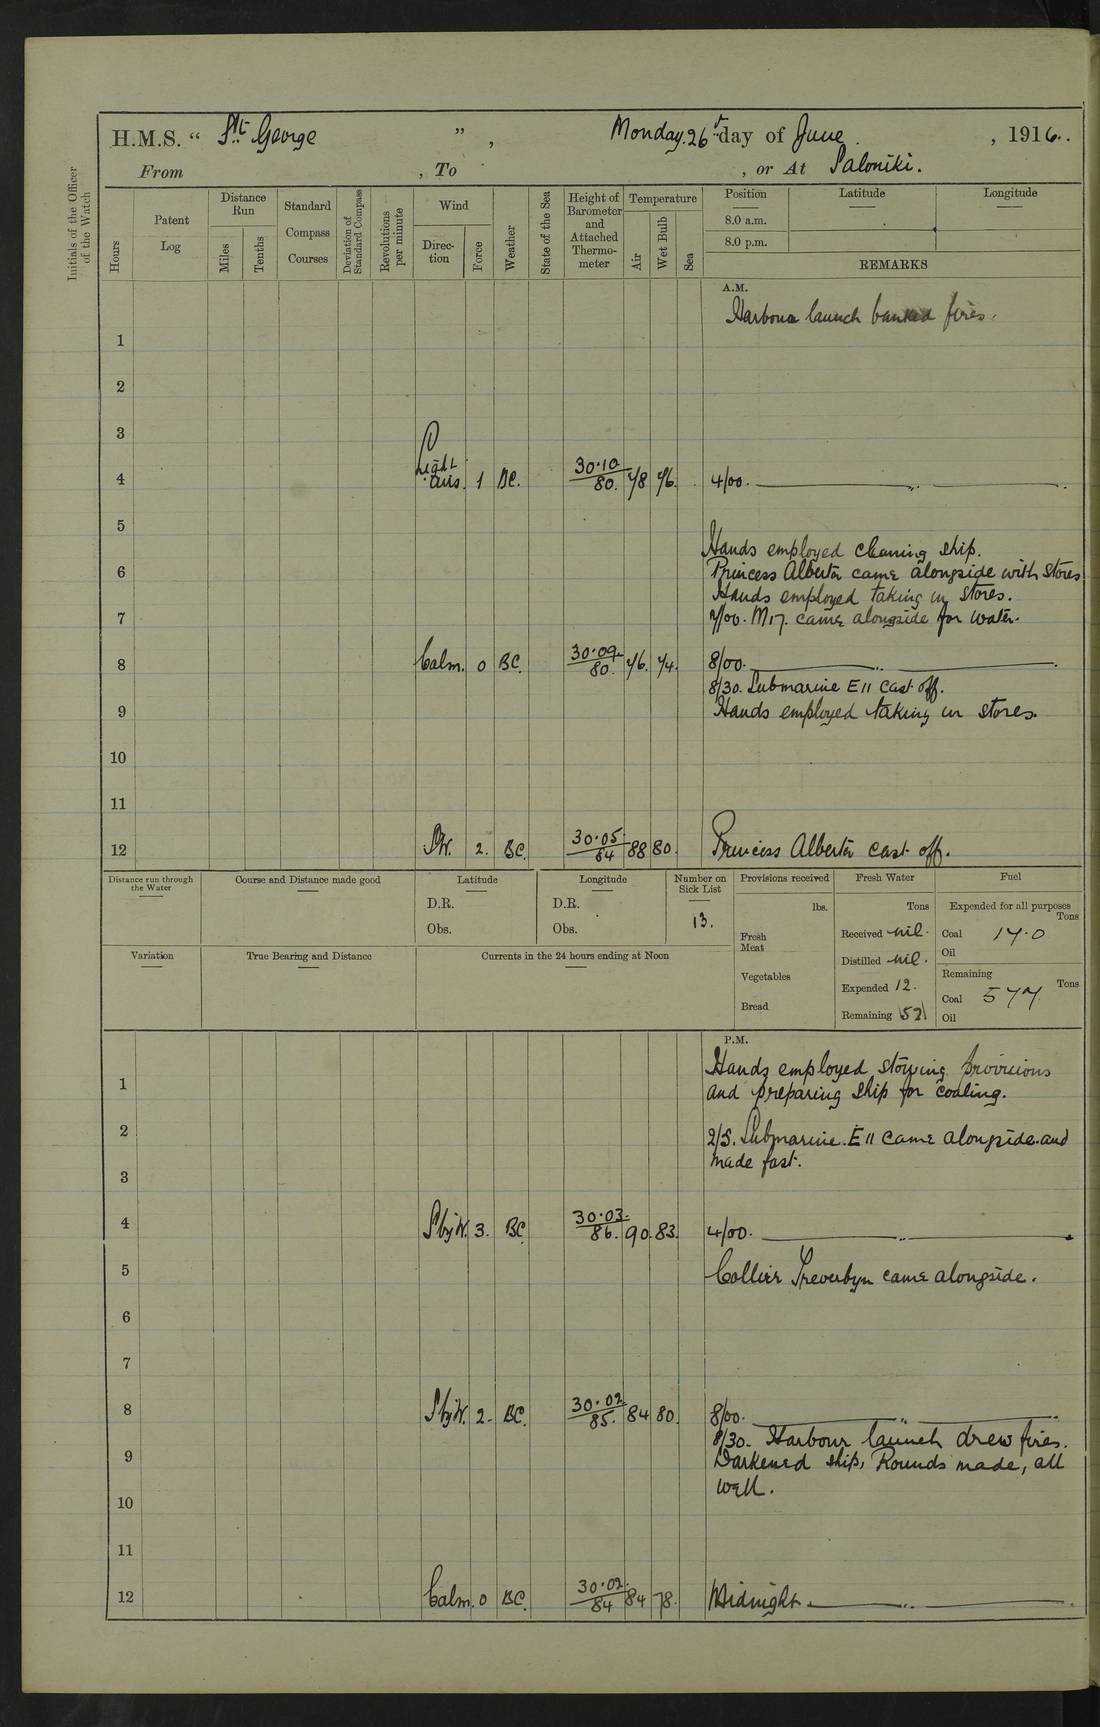 H.M.S. " St. George ", Monday. 26th day of June, 1916.
From , To , or At Saloniki.
Initials of the Officer of the Watch
Hours
Patent Log
Distance Run
Miles
Tenths
Standard Compass Courses
Deviation of Standard Compass
Revolutions per minute
Wind
Direction
Force
Weather
State of the Sea
Height of Barometer and Attached Thermometer
Temperature
Air
Wet Bulb
Sea
Position Latitude Longitude
8.0 a.m.
8.0 p.m.
REMARKS
A.M.
Harbour launch banked fires.
1
2
3
4 Light airs. 1 BC. 30.10 80. 78 76. 4/00. ———— " ————
5
Hands employed cleaning ship.
6 Princess Alberta came alongside with stores
Hands employed taking in stores.
7 7/00. M17. came alongside for water.
8 Calm. 0 BC. 30.09 80. 76. 74. 8/00. ———— " ————
8/30. Submarine E11 cast off.
9 Hands employed taking in stores.
10
11
12 SW. 2. BC. 30.05 84 88 80. Princess Alberta cast off.
Distance run through the Water
Course and Distance made good
Latitude
D.R.
Obs.
Longitude
D.R.
Obs.
Number on Sick List
13.
Provisions received
lbs.
Fresh Meat
Vegetables
Bread
Fresh Water
Tons
Received nil.
Distilled nil.
Expended 12.
Remaining 52
Fuel
Expended for all purposes
Tons
Coal 17.0
Oil
Remaining
Tons
Coal 577
Oil
Variation
True Bearing and Distance
Currents in the 24 hours ending at Noon
P.M.
Hands employed stowing provisions
1 and preparing ship for coaling.
2 2/5. Submarine E11 came alongside and
made fast.
3
4 SbyW. 3. BC. 30.03. 86. 90. 83. 4/00. ———— " ————
5 Collier Treverbyn came alongside.
6
7
8 SbyW. 2. BC. 30.02 85. 84 80. 8/00. ———— " ————
8/30. Harbour launch drew fires.
9 Darkened ship, Rounds made, all
well.
10
11
12 Calm. 0 BC. 30.02. 84 84 78. Midnight ———— " ————